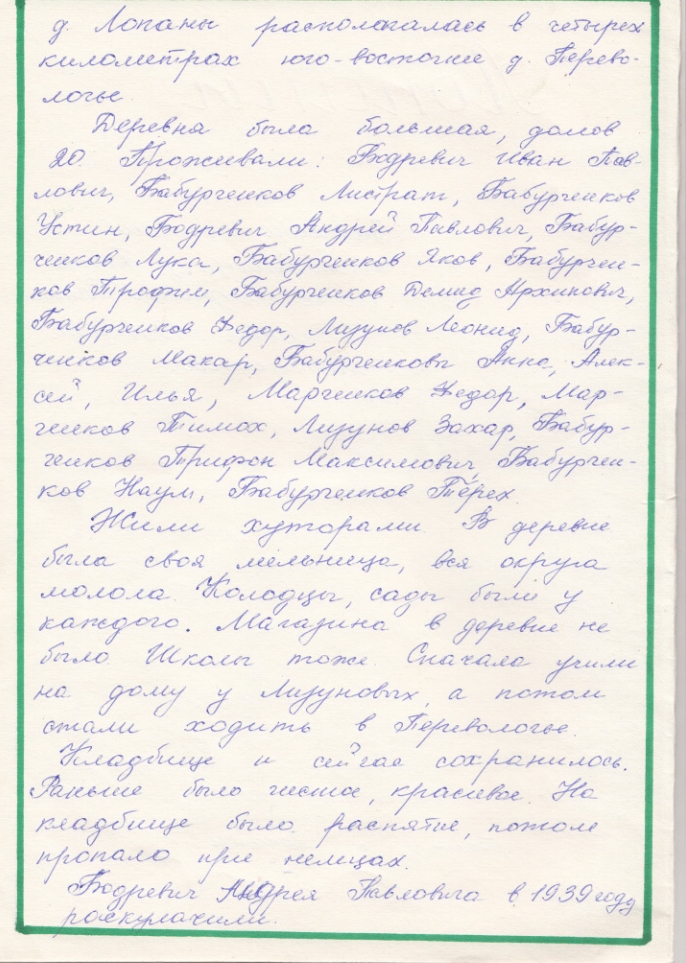 д. Лопаны располагалась в четырех
километрах юго-восточнее д. Перево-
лочье.
Деревня была большая, домов
20. Проживали: Бодревич Иван Пав-
лович, Бабурченков Листрат, Бабурченков
Устин, Бодревич Андрей Павлович, Бабур-
ченков Лука, Бабурченков Яков, Бабурчен-
ков Трофим, Бабурченков Демид Архипович,
Бабурченков Федор, Лизунов Леонид, Бабур-
ченков Макар, Бабурченковы Анна, Алек-
сей, Илья, Марченков Федор, Мар-
ченков Тимох, Лизунов Захар, Бабур-
ченков Трифон Максимович, Бабурчен-
ков Наум, Бабурченков Тёрех.
Жили хуторами. В деревне
была своя мельница, вся округа
молола. Колодцы, сады были у
каждого. Магазина в деревне не
было. Школы тоже. Сначала учили
на дому у Лизуновых, а потом
стали ходить в Переволочье.
Кладбище и сейчас сохранилось.
Раньше было чистое, красивое. На
кладбище было распятие, потом
пропало при немцах.
Бодревич Андрея Павловича в 1939 году
раскулачили.